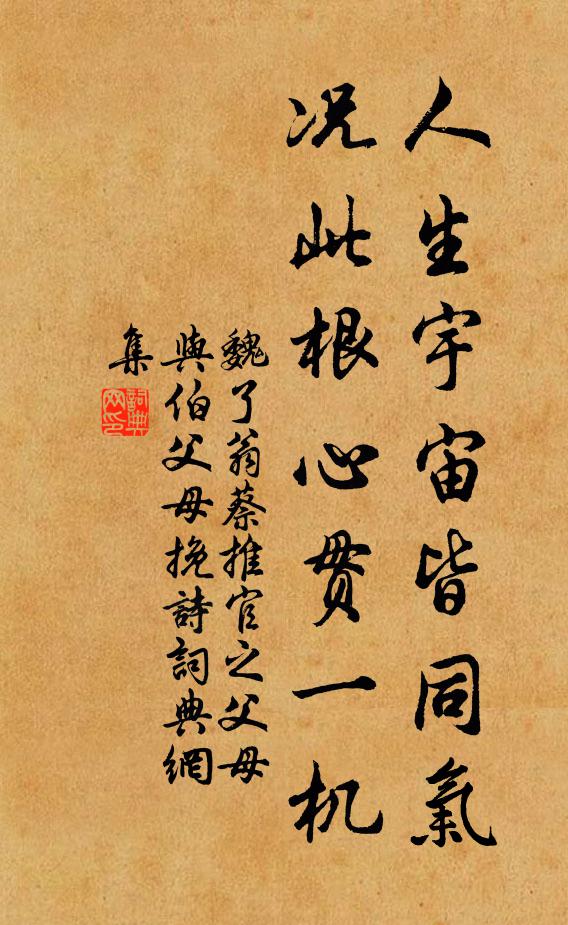 人生宇宙皆同氣
况此根心貫一机
魏了翁蔡推官之父母
與伯父母挽詩詞典網
集
詞典
网印